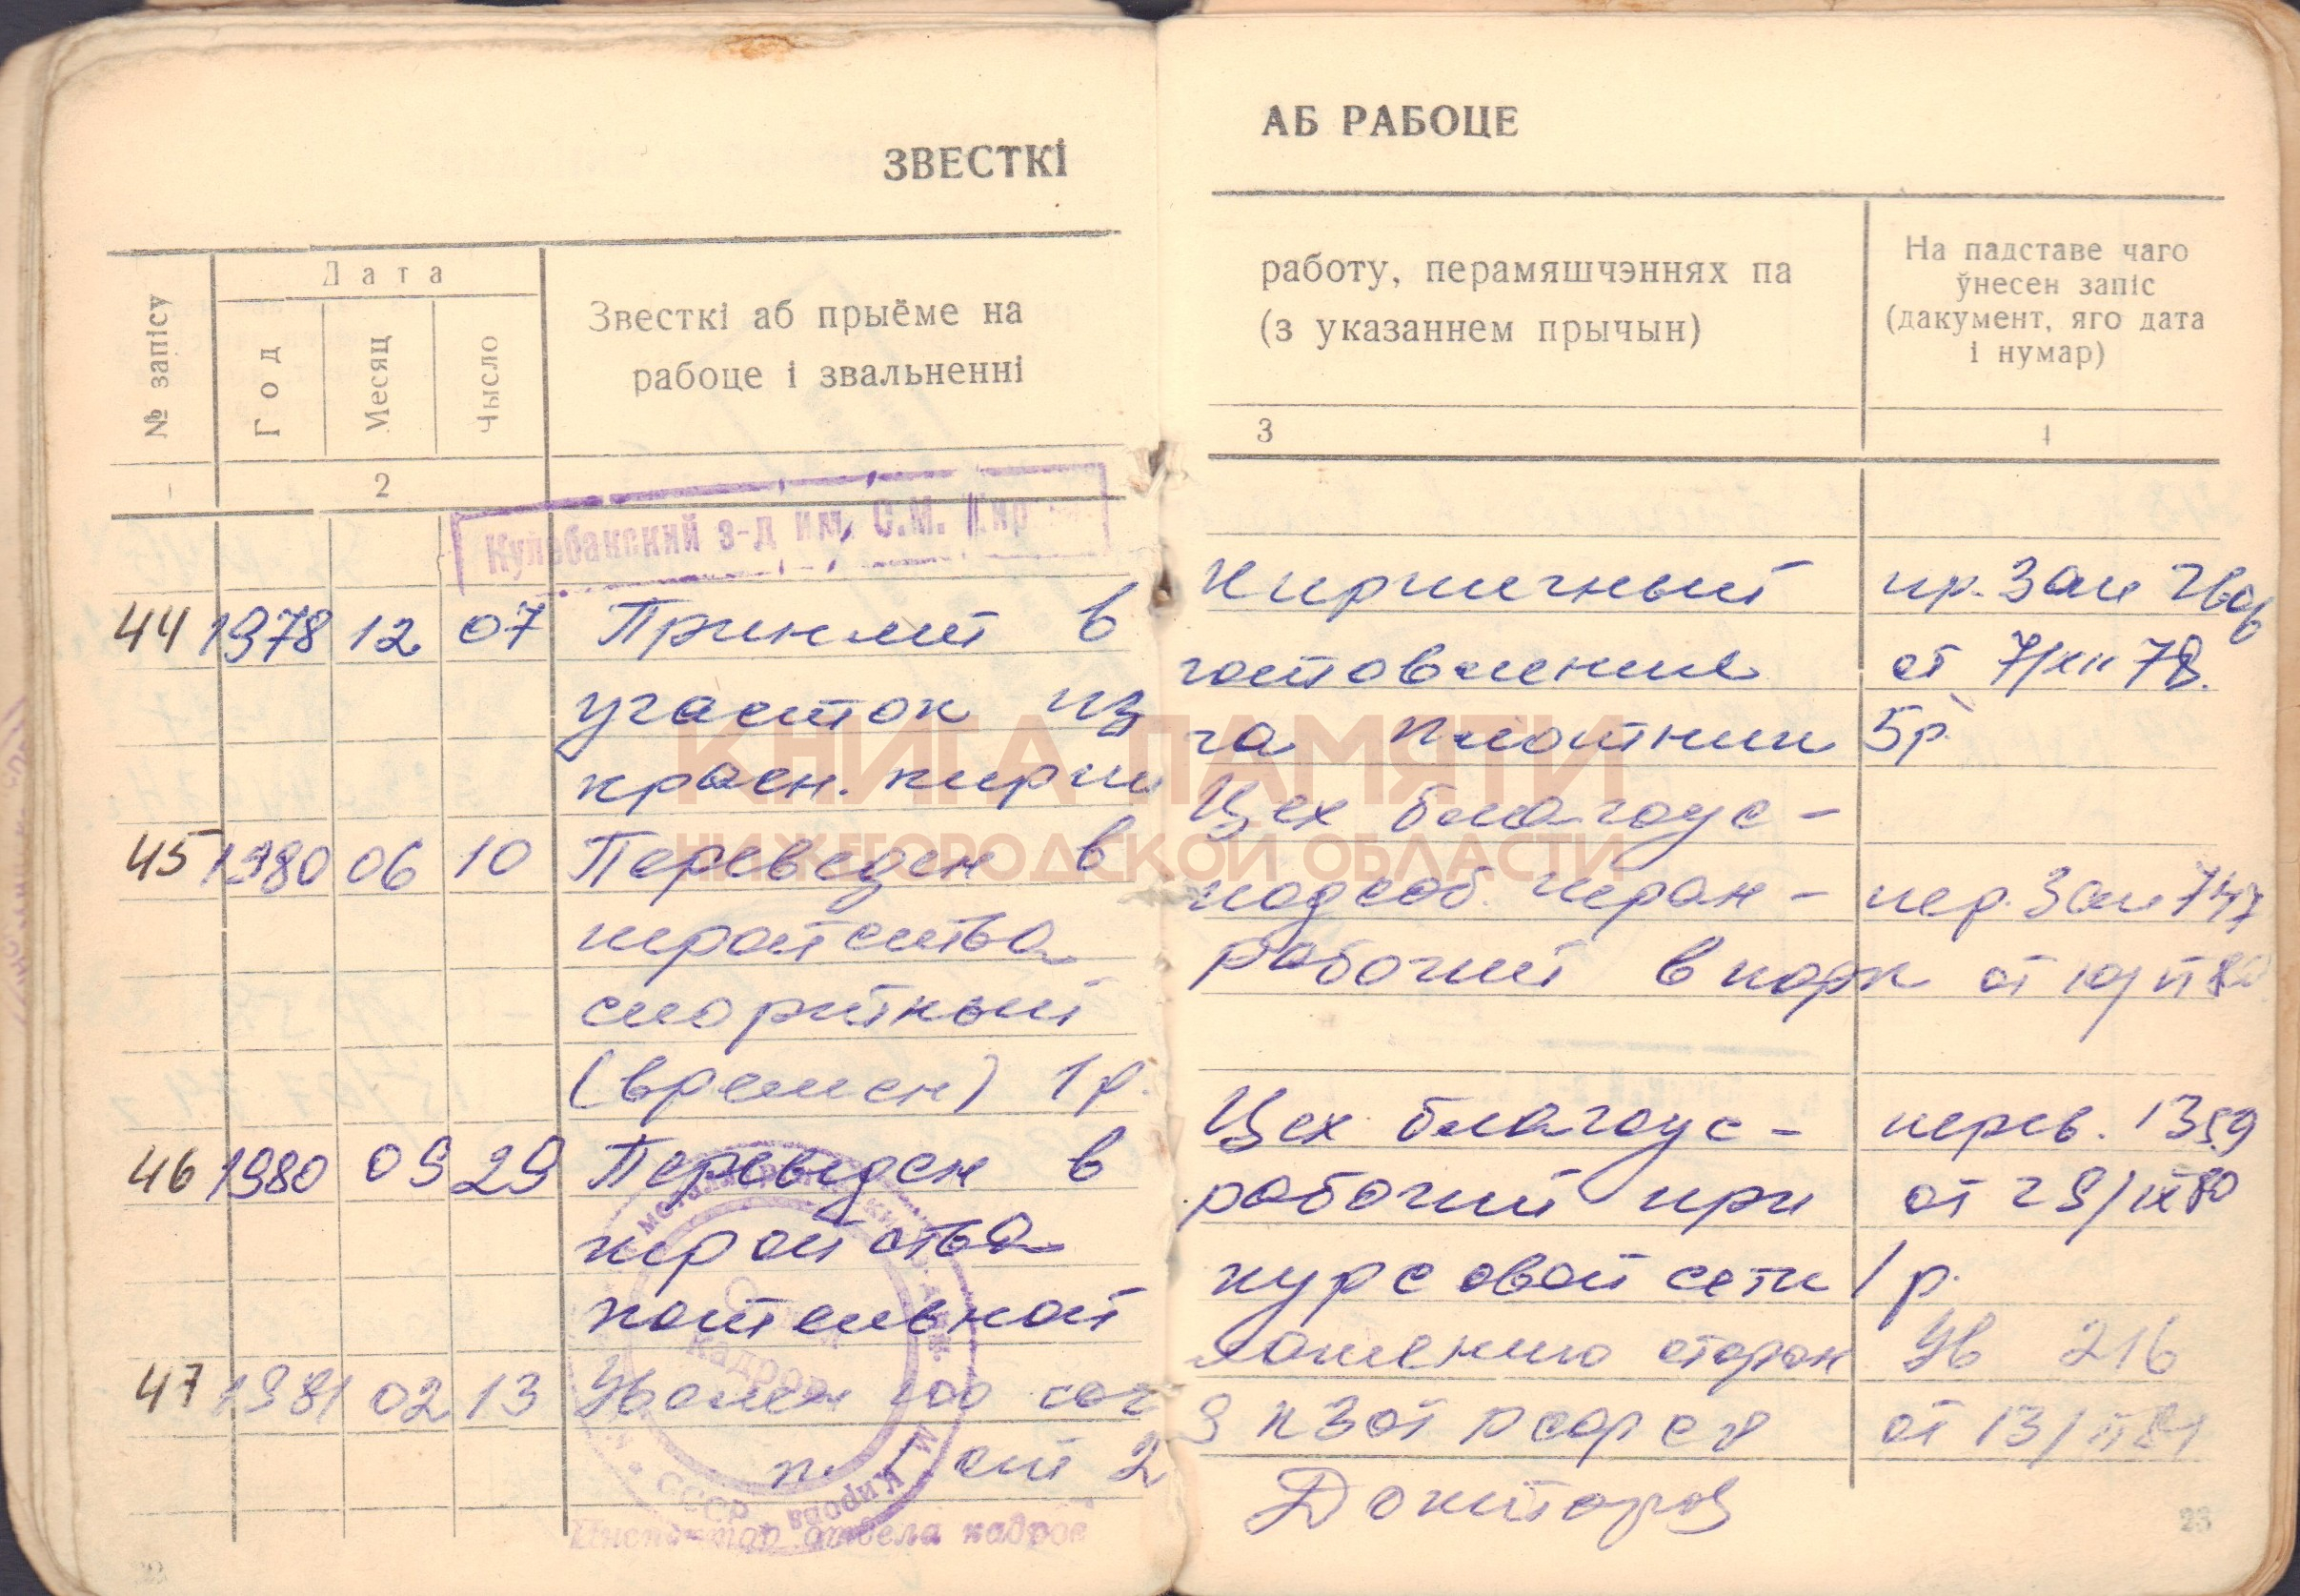 ЗВЕСТКІ
№ запісу
Дата
Год
Месяц
Чысло
Звесткі аб прыёме на
рабоце і звальненні
2
Кулебакский з-д им. С.М. Кир
44 1978 12 07 Принят в
участок из
красн. кирпи
45 1980 06 10 Переведен в
тройства
(времен) 1 р.
46 1980 09 29 Переведен в
тройства
котельной
47 1981 02 13 Уволен по сог
п. 1 ст 2
Отдел
кадров
Кирова
СССР
Инспектор отдела кадров
АБ РАБОЦЕ
работу, перамяшчэннях па
(з указаннем прычын)
На падставе чаго
ўнесен запіс
(дакумент, яго дата
і нумар)
3
4
Кирпичный пр. Зам
готовления от 7/XII 78.
ча плотник 5р.
Цех благоус-
подсоб. пер. Зам 747
рабочий в парк от 10/VI 80
Цех благоус- перев. 1359
рабочий при от 29/IX 80
курсовой сети 1 р.
лашению сторон Ув 216
9 КЗОТ РСФСР от 13/II 81
23
КНИГА ПАМЯТИ
НИЖЕГОРОДСКОЙ ОБЛАСТИ